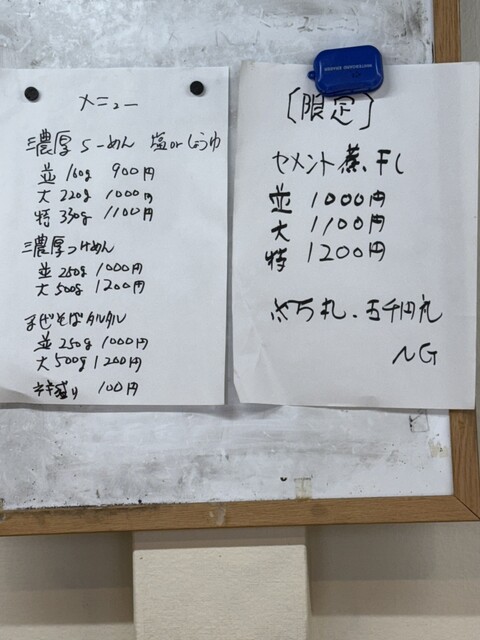 メニュー
濃厚らーめん 塩orしょうゆ
並 160g 900円
大 220g 1000円
特 330g 1100円
濃厚つけめん
並 250g 1000円
大 500g 1200円
まぜそばタルタル
並 250g 1000円
大 500g 1200円
ネギ盛り 100円
[限定]
セメント煮干し
並 1000円
大 1100円
特 1200円
※万札、五千円札
NG